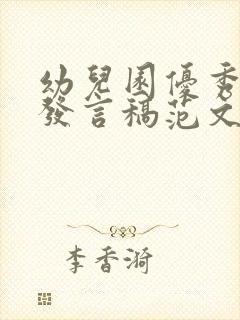 幼兒園優秀
發言稿范文
李香漪